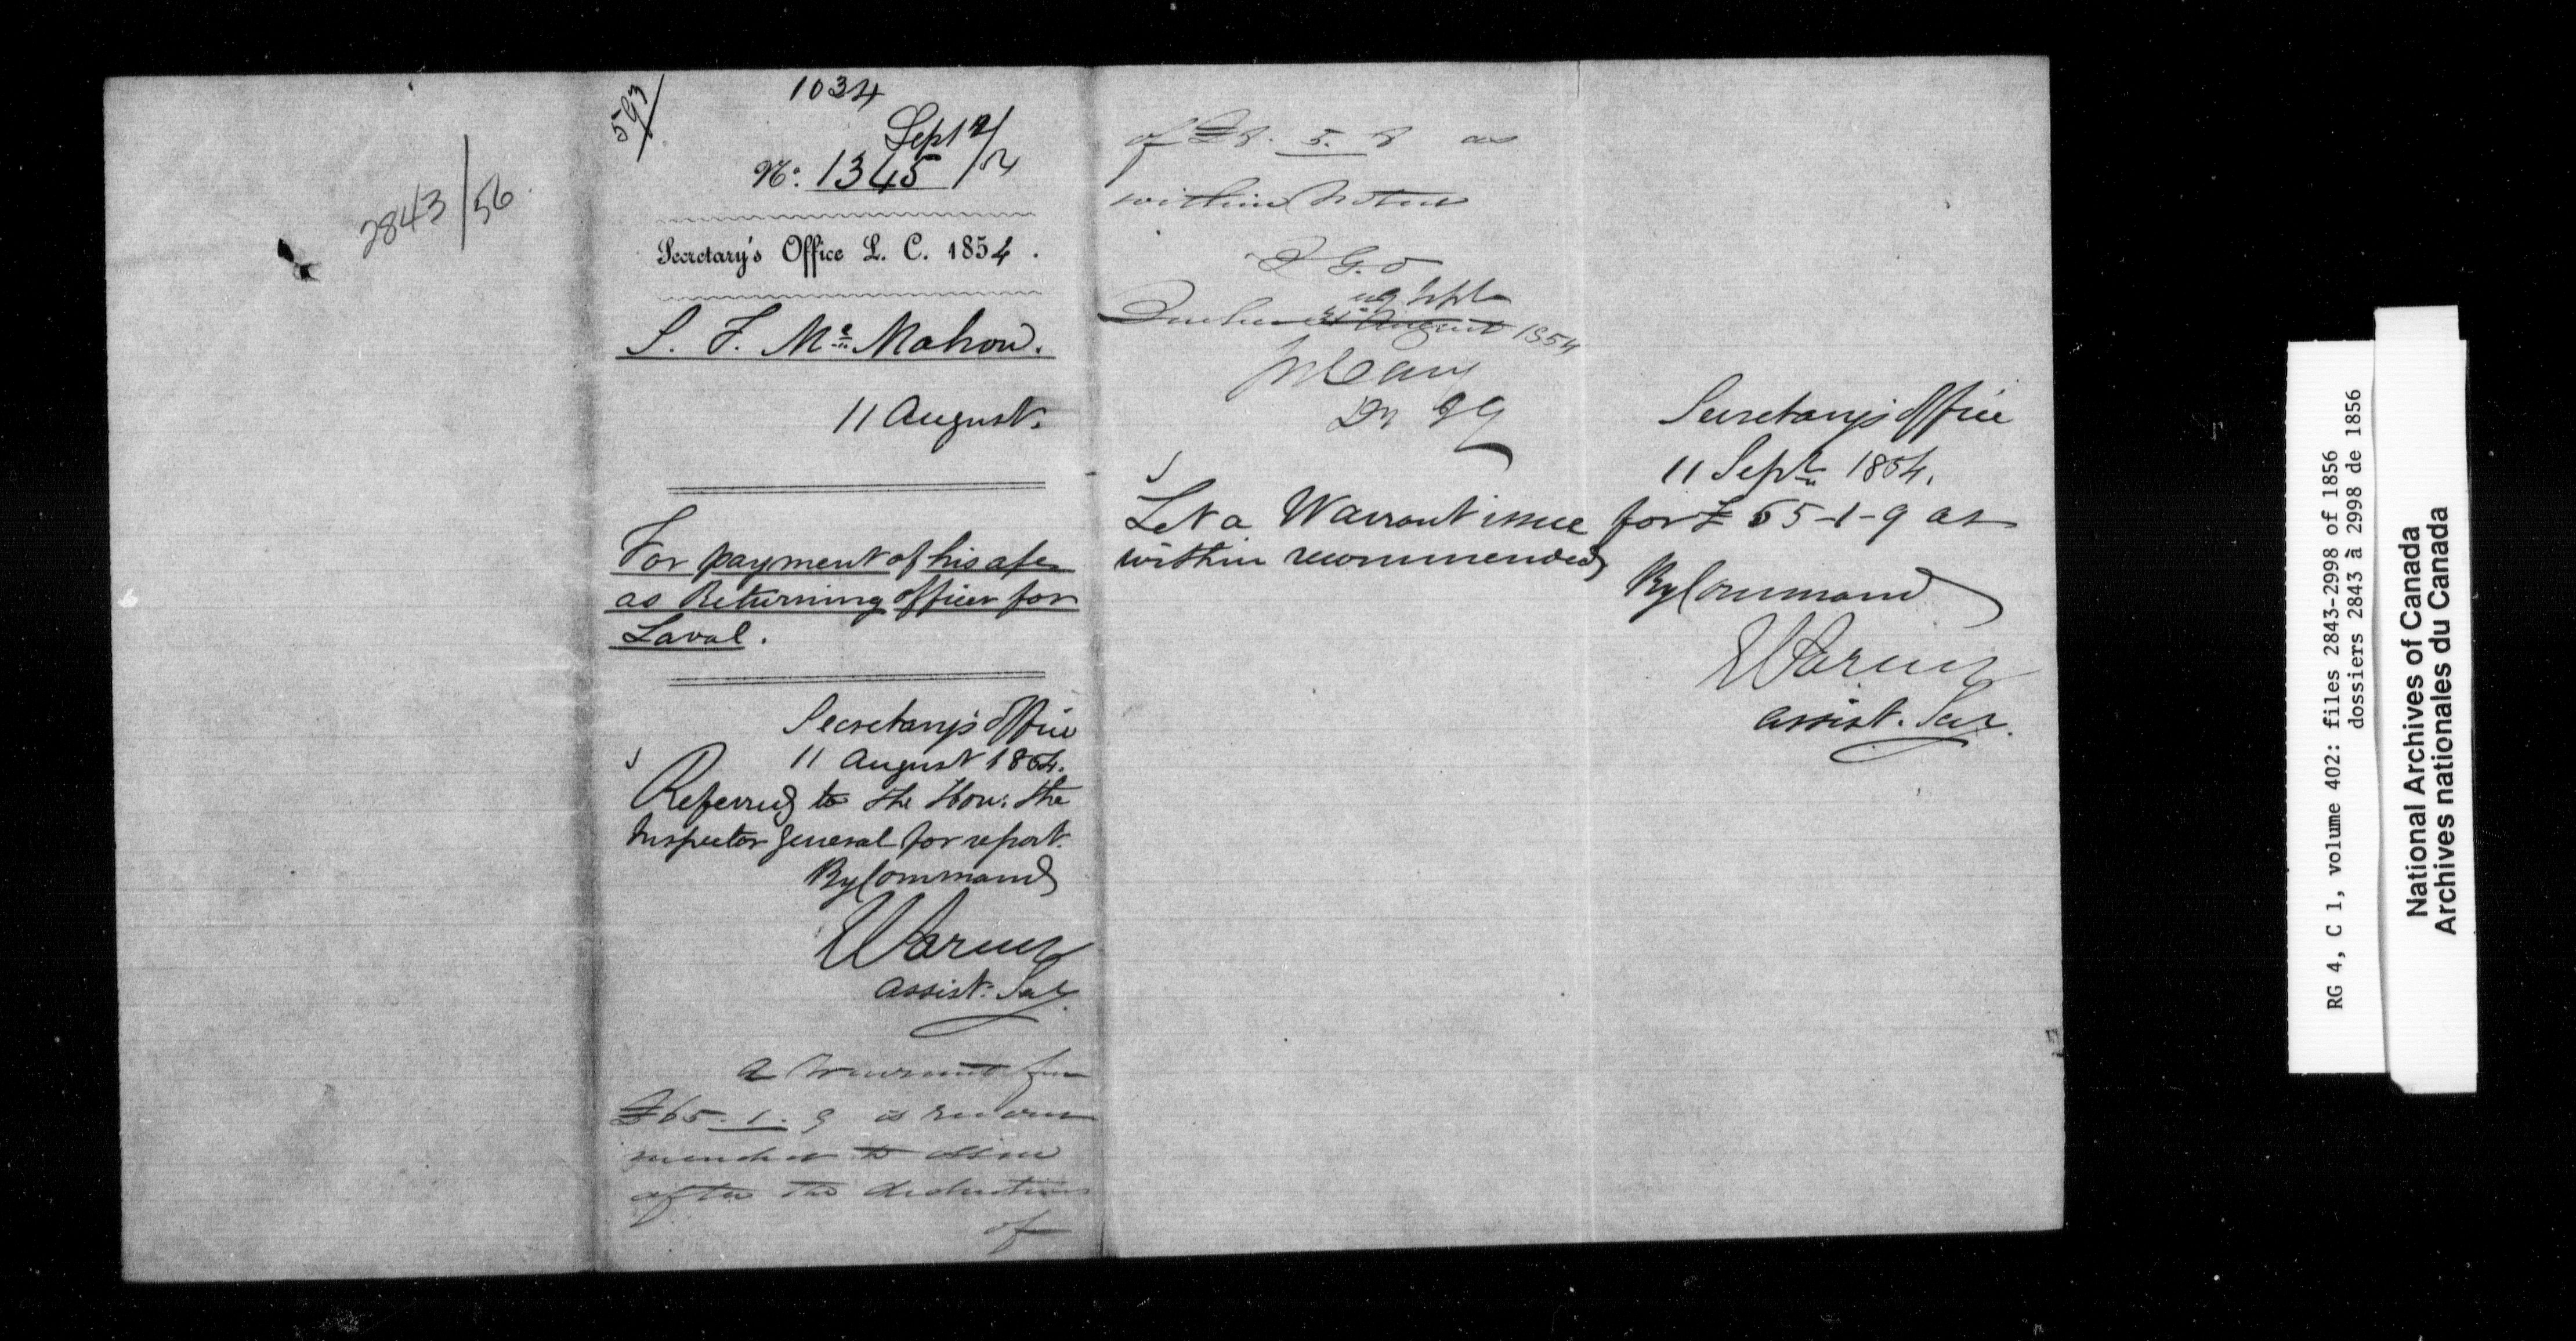 2843/56
593/
1034
Sept 12/54
No: 1345
Secretary's Office L. C. 1854.
S. F. Mc Mahon.
11 August.
For payment of his a/c
as Returning officer for
Laval.
Secretary's Office
11 August 1854.
Referred to the Hon: the
Inspector General for report.
By Command
Assist: Sec.
A Warrant for
£65. 1. 9 is recom
mended to issue
after the deduction
of
of £8. 5. 8 as
within noted
I. G. O
Sept
Quebec 31st August 1854
Jos Cary
Dy IG
Let a Warrant issue for £65-1-9 as
within recommended
Secretary's Office
11 Sept. 1854.
By Command
Assist. Sec.
RG 4, C 1, volume 402: files 2843-2998 of 1856
dossiers 2843 à 2998 de 1856
National Archives of Canada
Archives nationales du Canada